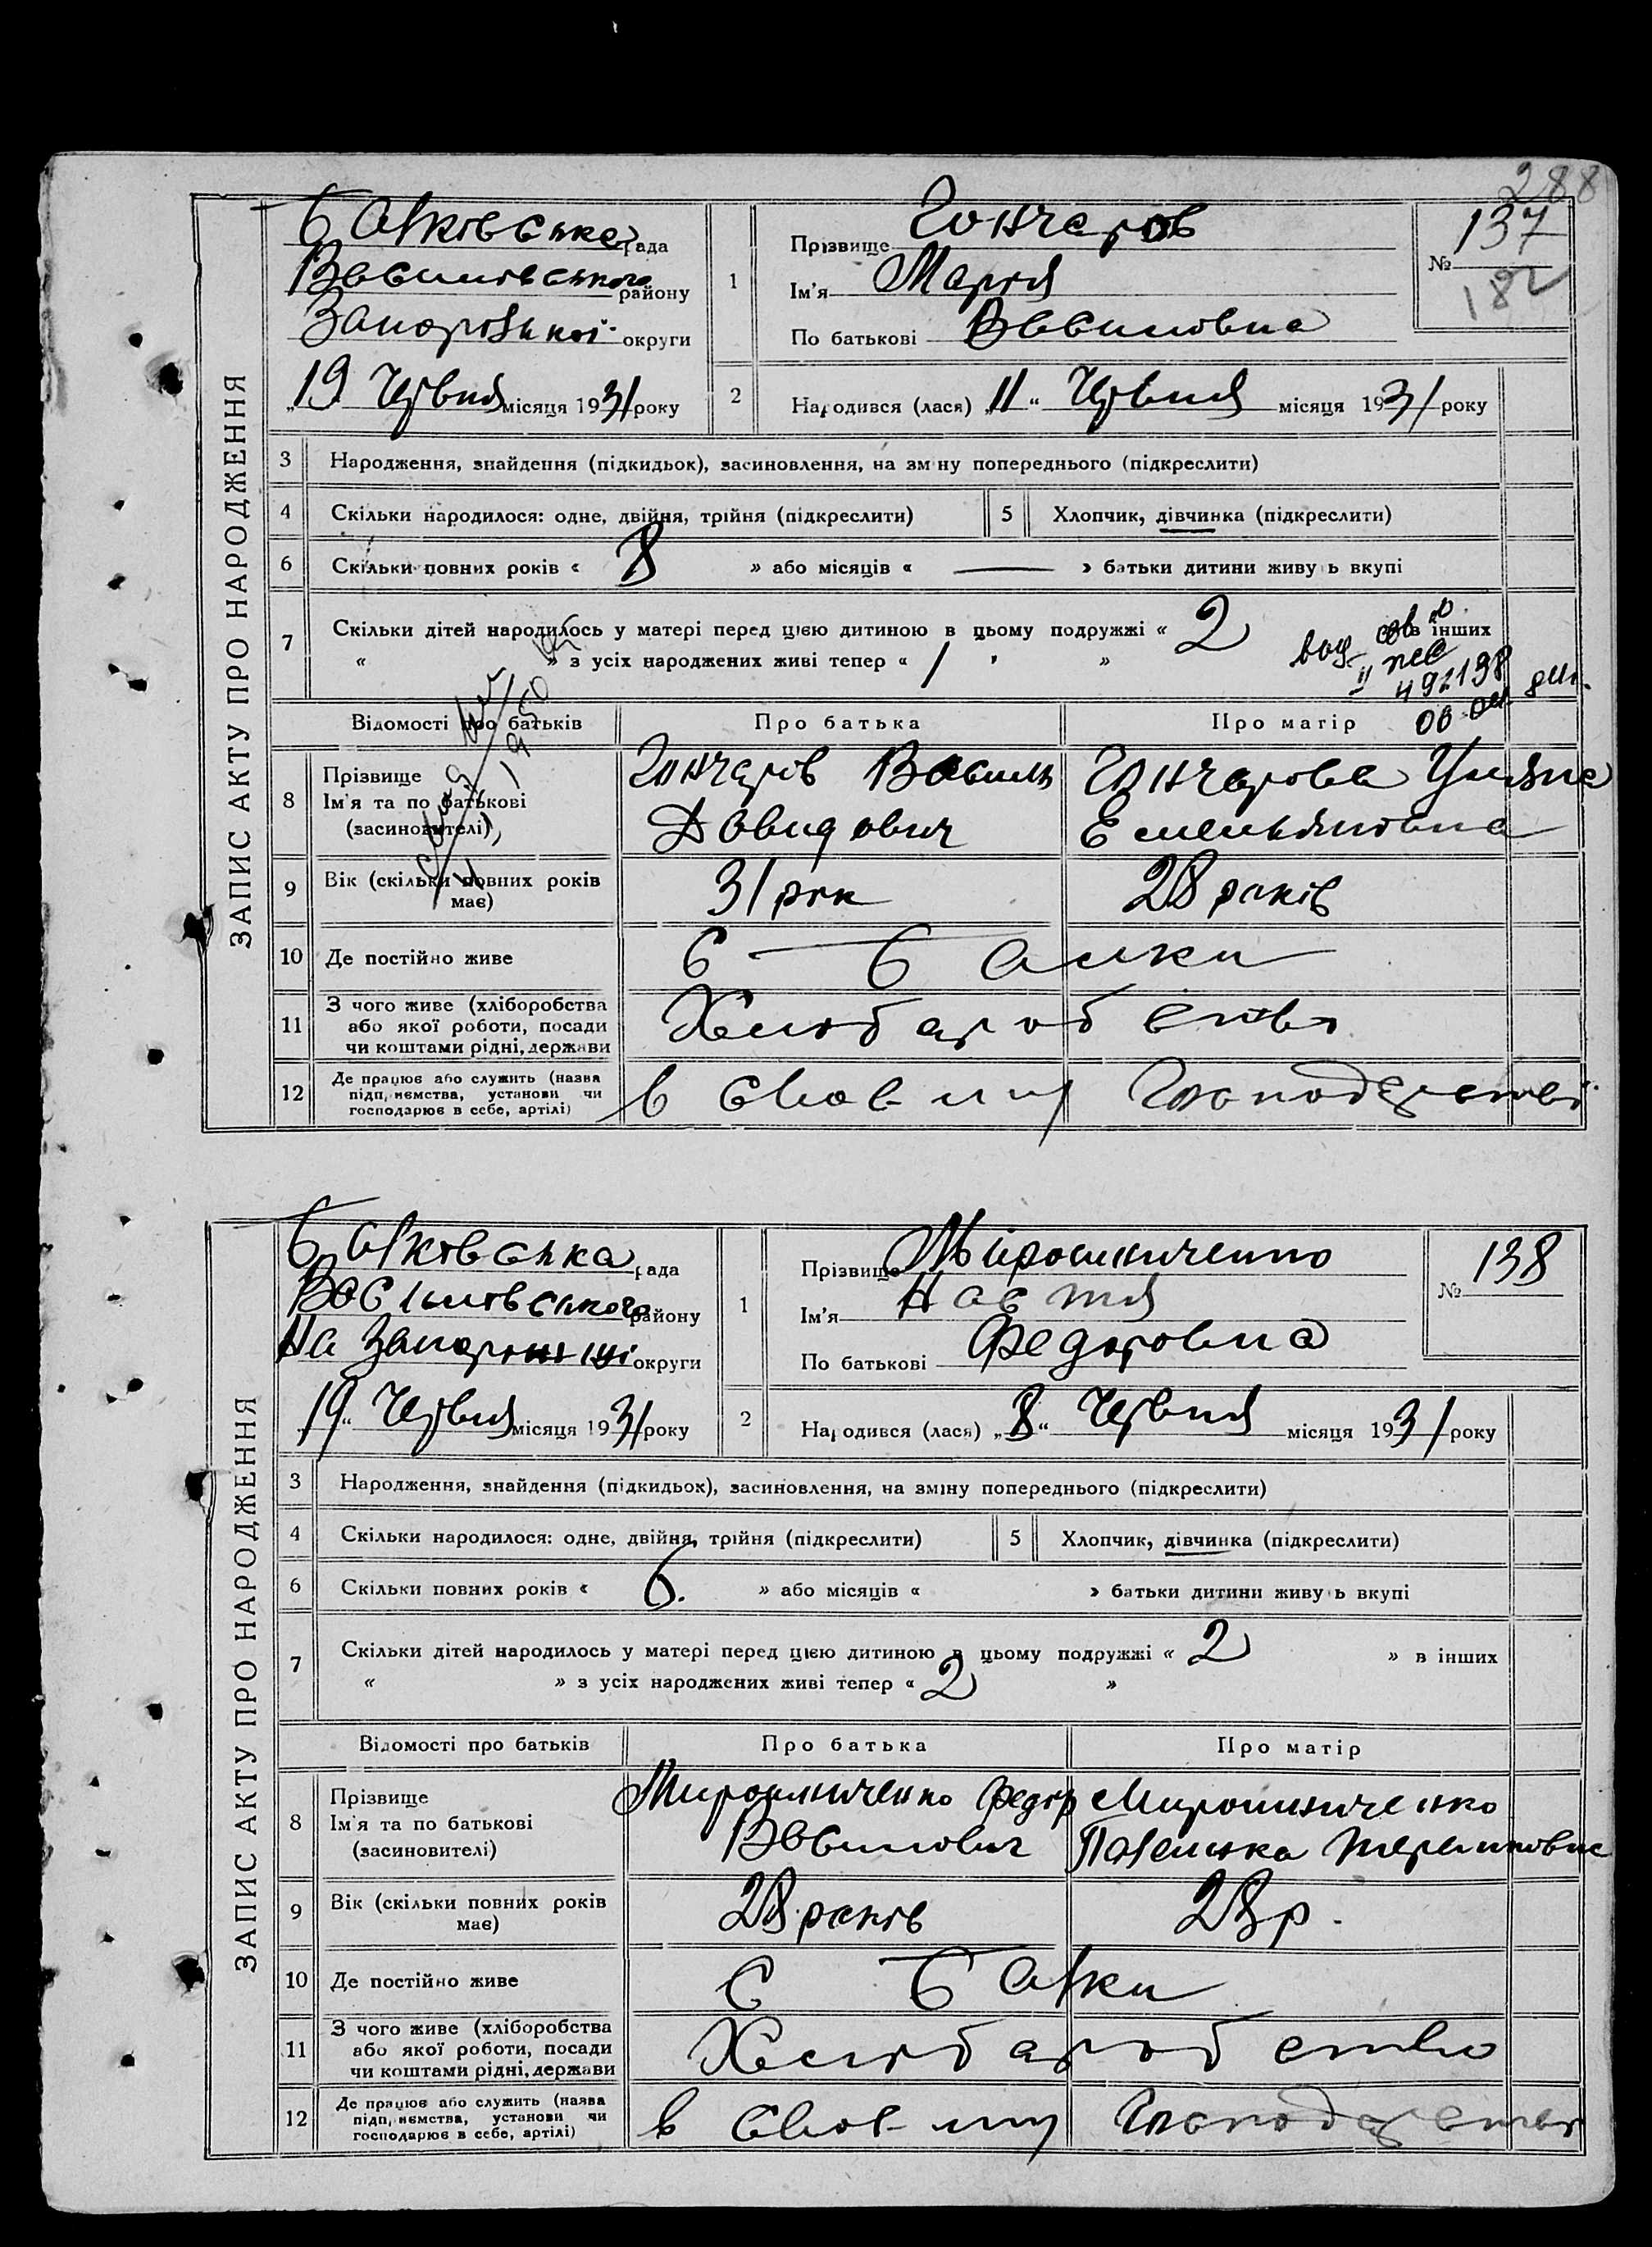 288
ЗАПИС АКТУ ПРО НАРОДЖЕННЯ
Балківська рада
Василівського району
Запорізької округи
19 Червня місяця 1931 року
1
Прізвище Гончаров
Ім'я Марія
По батькові Василовна
№ 137
182
2
Народився (лася) „11“ Червня місяця 1931 року
3 Народження, знайдення (підкидьок), засиновлення, на зміну попереднього (підкреслити)
4 Скільки народилося: одне, двійня, трійня (підкреслити) 5 Хлопчик, дівчинка (підкреслити)
6 Скільки повних років « 8 » або місяців « — » батьки дитини живуть вкупі
7 Скільки дітей народилось у матері перед цією дитиною в цьому подружжі « 2 » в інших
« » з усіх народжених живі тепер « 1 »
492198
1950
Відомості про батьків Про батька Про матір
8 Прізвище
Ім'я та по батькові
(засиновителі)
Гончарів Василь
Давидович
Гончарова Уляна
Емельяновна
9 Вік (скільки повних років
має)
31 рік 28 років
10 Де постійно живе С — Балки
11 З чого живе (хліборобства
або якої роботи, посади
чи коштами рідні, держави
Хліборобство
12 Де працює або служить (назва
підприємства, установи чи
господарює в себе, артілі)
в своєму Господарстві
ЗАПИС АКТУ ПРО НАРОДЖЕННЯ
Балківська рада
Василівського району
На Запоріжжі округи
19“ Червня місяця 1931 року
1
Прізвище Мірошниченко
Ім'я Настя
По батькові Федоровна
№ 138
2
Народився (лася) „8“ Червня місяця 1931 року
3 Народження, знайдення (підкидьок), засиновлення, на зміну попереднього (підкреслити)
4 Скільки народилося: одне, двійня, трійня (підкреслити) 5 Хлопчик, дівчинка (підкреслити)
6 Скільки повних років « 6. » або місяців « » батьки дитини живуть вкупі
7 Скільки дітей народилось у матері перед цією дитиною в цьому подружжі « 2 » в інших
« » з усіх народжених живі тепер « 2 »
Відомості про батьків Про батька Про матір
8 Прізвище
Ім'я та по батькові
(засиновителі)
Мирошниченко Федір
Василович
Мирошниченко
9 Вік (скільки повних років
має)
28 років 28 р.
10 Де постійно живе С Балки
11 З чого живе (хліборобства
або якої роботи, посади
чи коштами рідні, держави
Хліборобство
12 Де працює або служить (назва
підприємства, установи чи
господарює в себе, артілі)
в своєму Господарстві